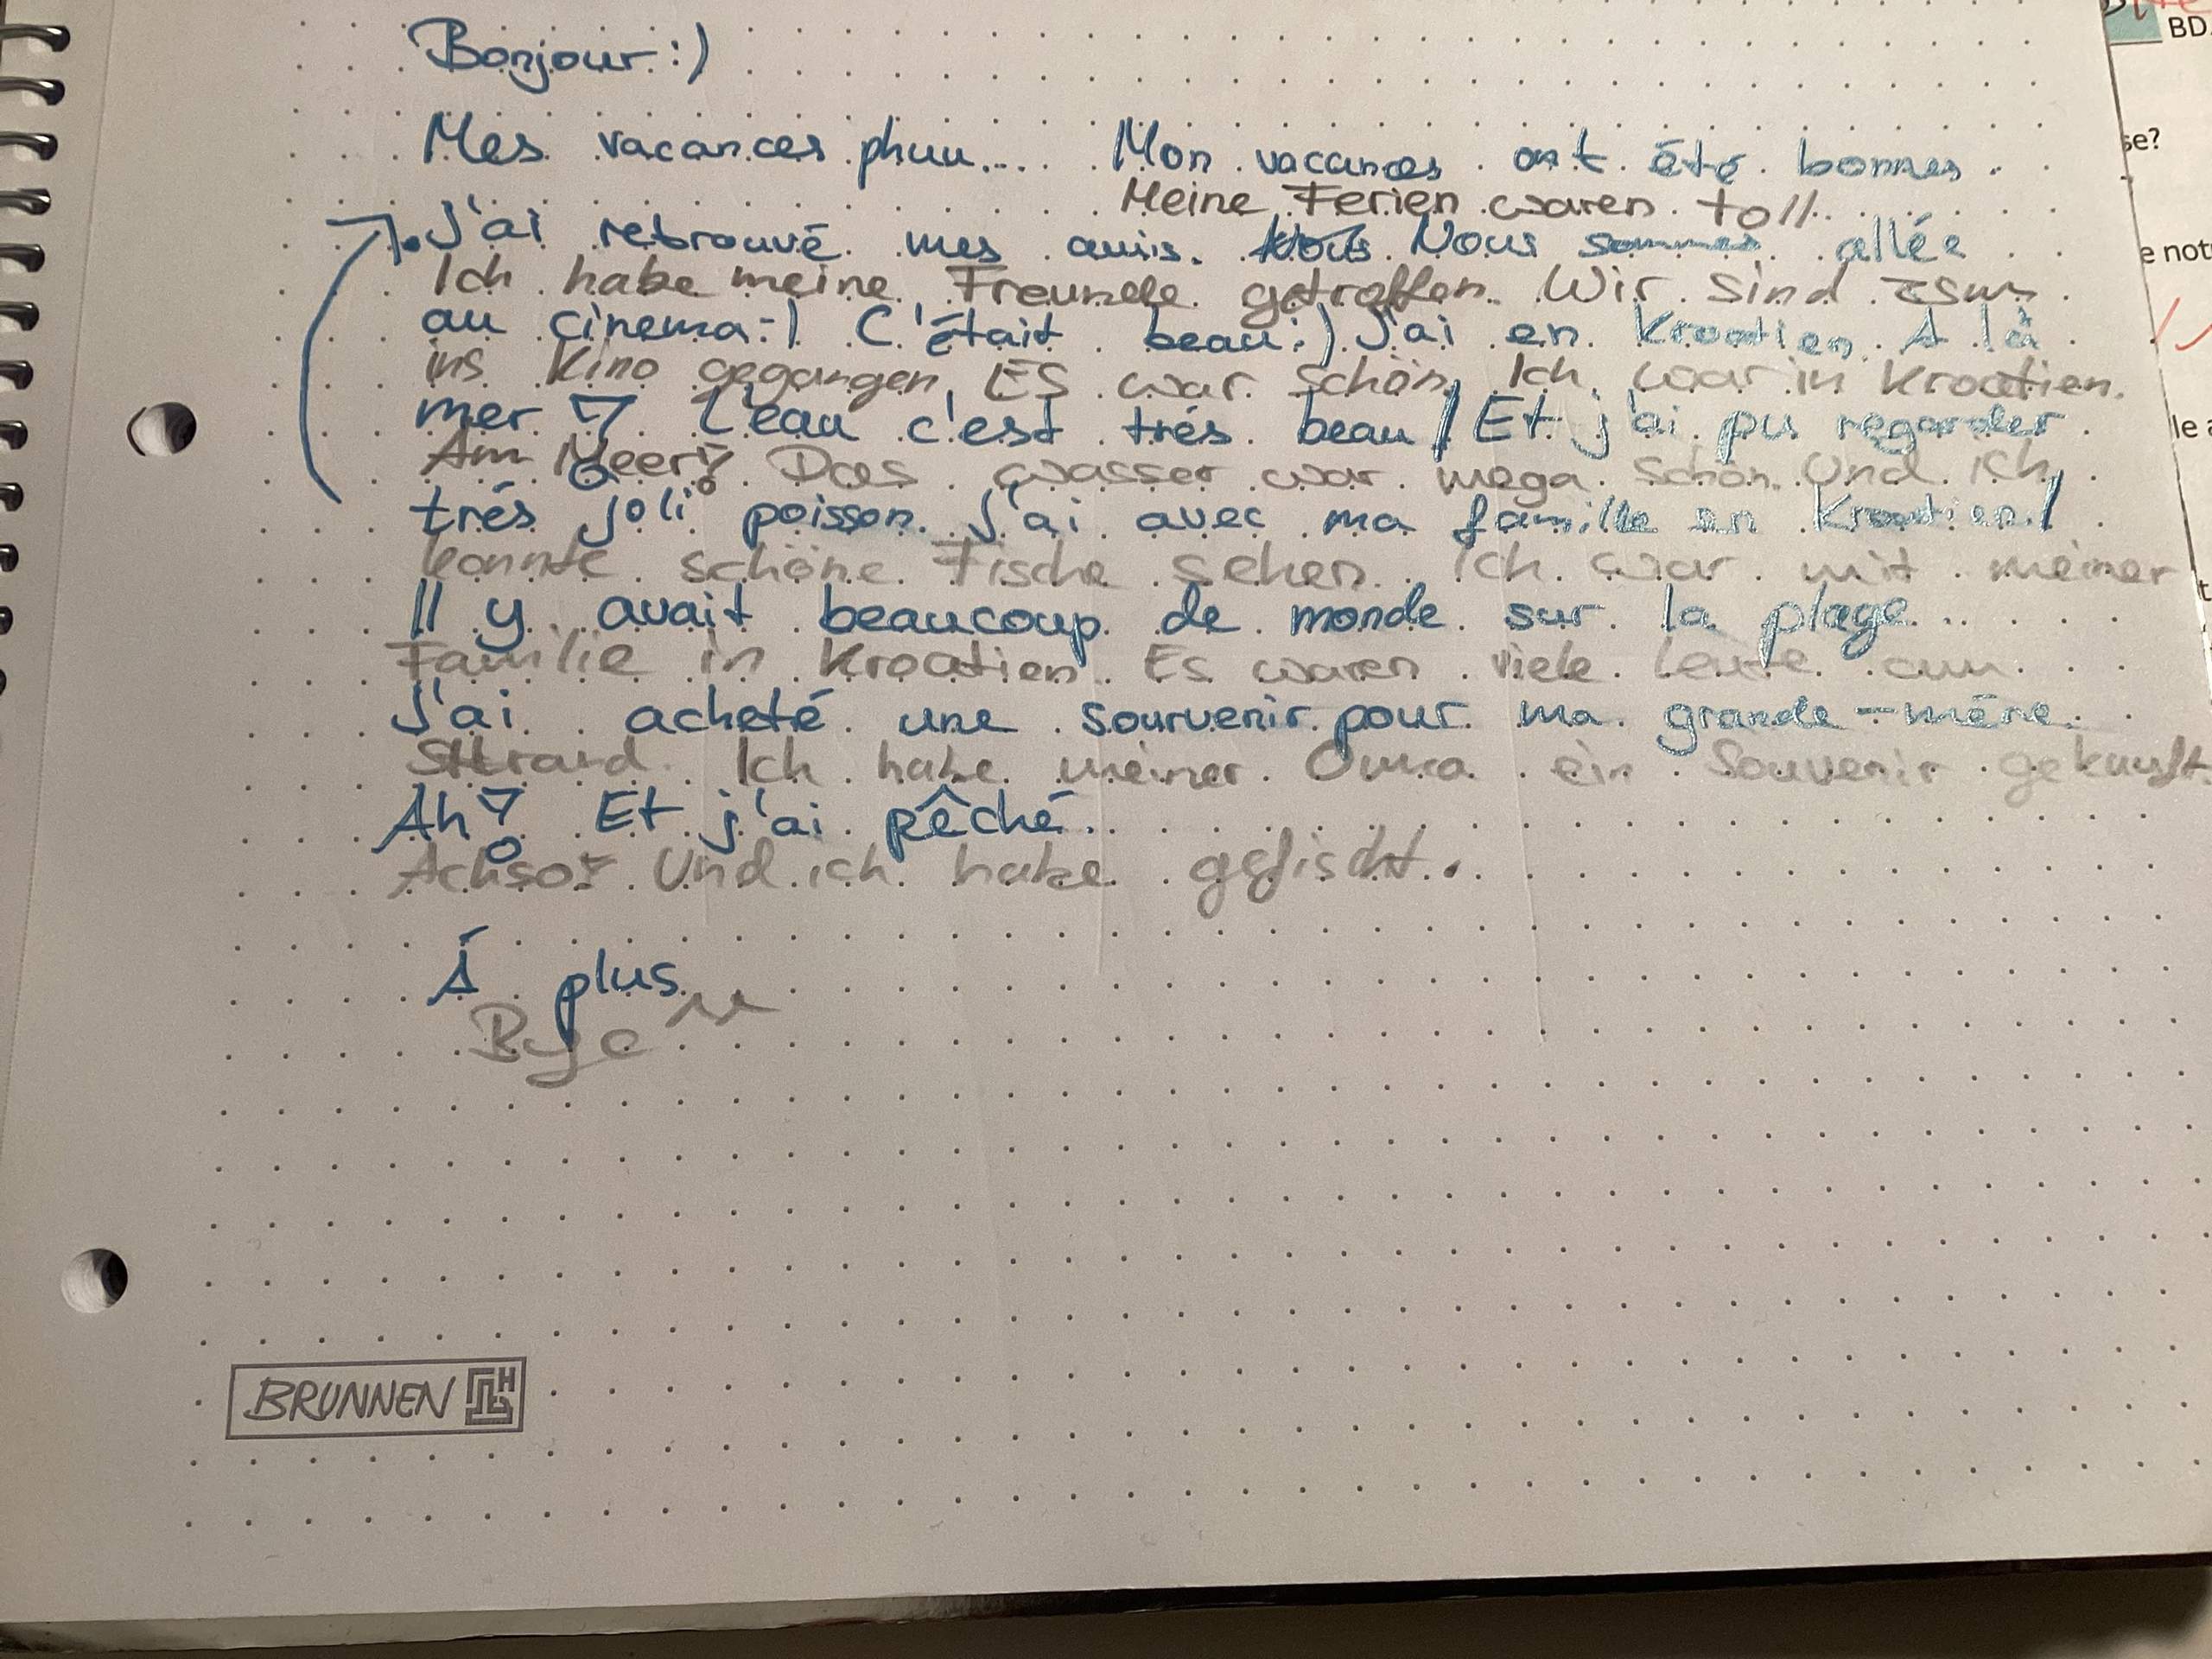 Bonjour :)
Mes vacances phuu.... Mon vacances ont été bonnes.
Meine Ferien waren toll.
J'ai retrouvé mes amis. Nous sommes allée
Ich habe meine Freunde getroffen. Wir sind zsm.
au cinema :) C'était beau :) J'ai en Kroatien. A la
ins Kino gegangen. ES war schön. Ich war in Kroatien.
mer! L'eau c'est trés beau / Et j'ai pu regarder
Am Meer! Das wasser war mega schön. Und ich
trés joli poisson. J'ai avec ma famille en Kroatien /
konnte schöne Fische sehen. Ich war mit meiner
Il y avait beaucoup de monde sur la plage.
Familie in Kroatien. Es waren viele leute am
J'ai acheté une sourvenir pour ma grande-mére.
Strand. Ich habe meiner Oma ein Souvenir gekauft
Ah! Et j'ai pêché.
Achso! Und ich habe gefischt.
Á plus
Bye
BRUNNEN
BD.
se?
e not
le